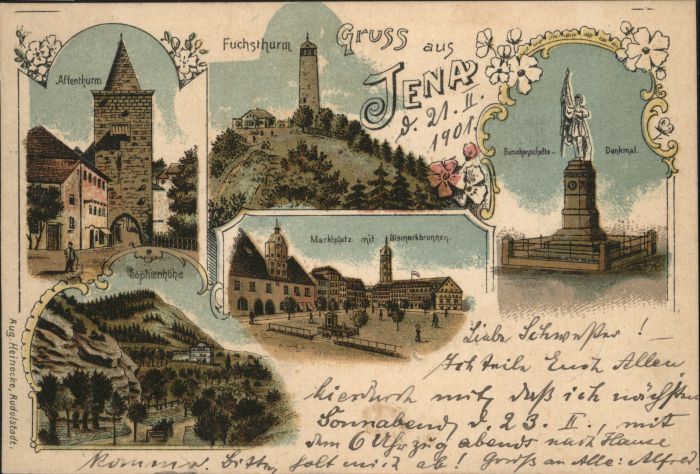 Gruss aus
JENA
d. 21. II.
1901.
Affenthurm
Fuchsthurm
Burschenschafts-Denkmal.
Marktplatz mit Bismarkbrunnen.
Sophienhöhe
Aug. Heinecke, Rudolstadt.
Liebe Schwester!
Ich teile Euch Allen
hierdurch mit, daß ich nächsten
Sonnabend, d. 23. II., mit
dem 6 Uhrzug abends nach Hause
komme. Bitte, holt mich ab! Gruß an Alle: Alfred